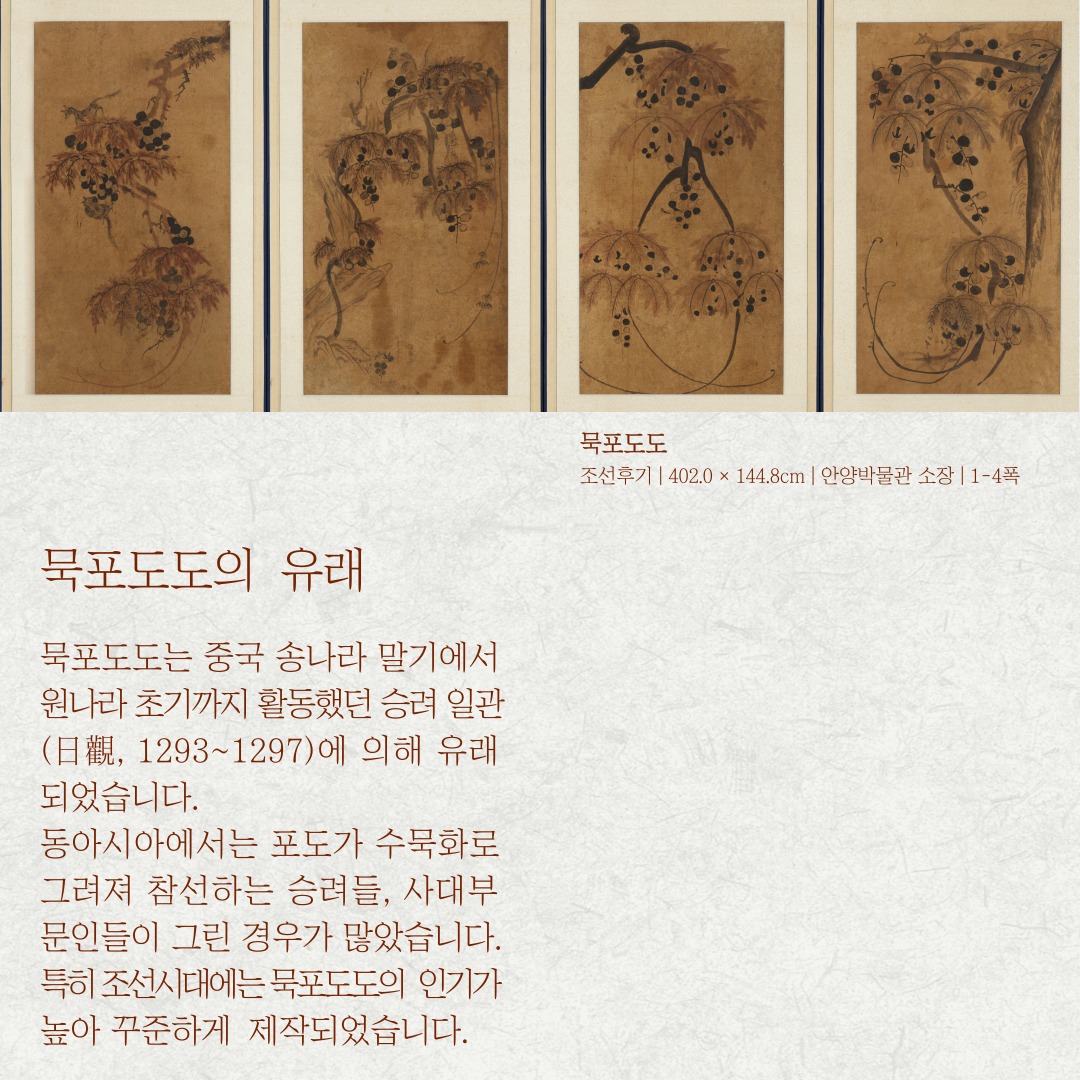 묵포도도
조선후기 | 402.0 × 144.8cm | 안양박물관 소장 | 1-4폭
묵포도도의 유래
묵포도도는 중국 송나라 말기에서
원나라 초기까지 활동했던 승려 일관
(日觀, 1293~1297)에 의해 유래
되었습니다.
동아시아에서는 포도가 수묵화로
그려져 참선하는 승려들, 사대부
문인들이 그린 경우가 많았습니다.
특히 조선시대에는 묵포도도의 인기가
높아 꾸준하게 제작되었습니다.